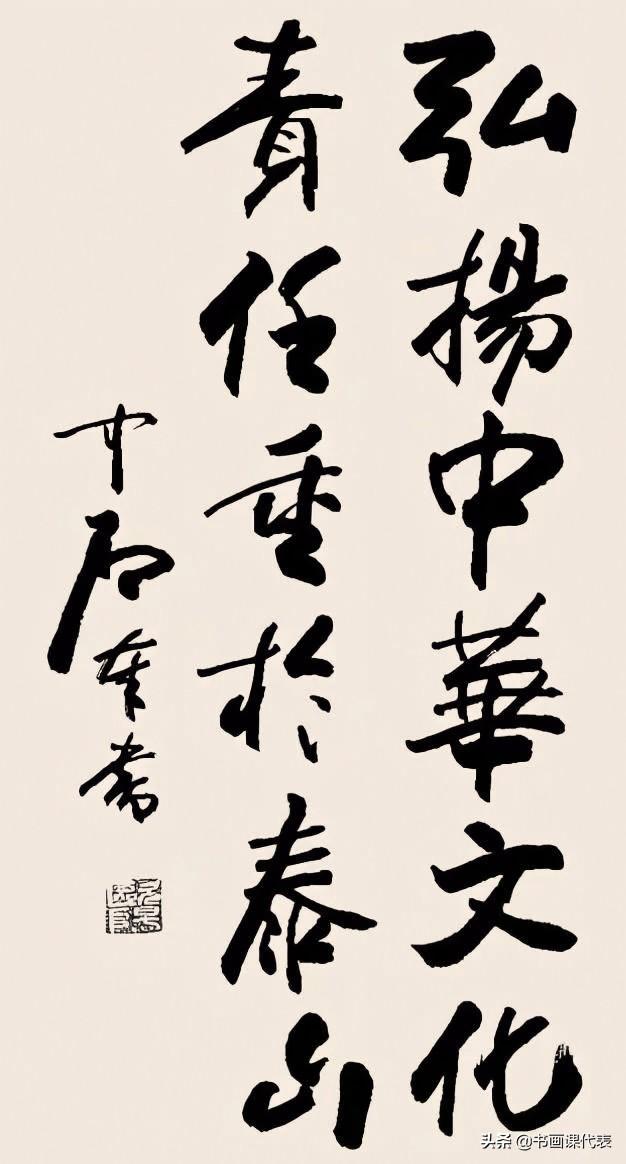 弘揚中華文化
責任重於泰山
中石奉書
头条 @书画课代表